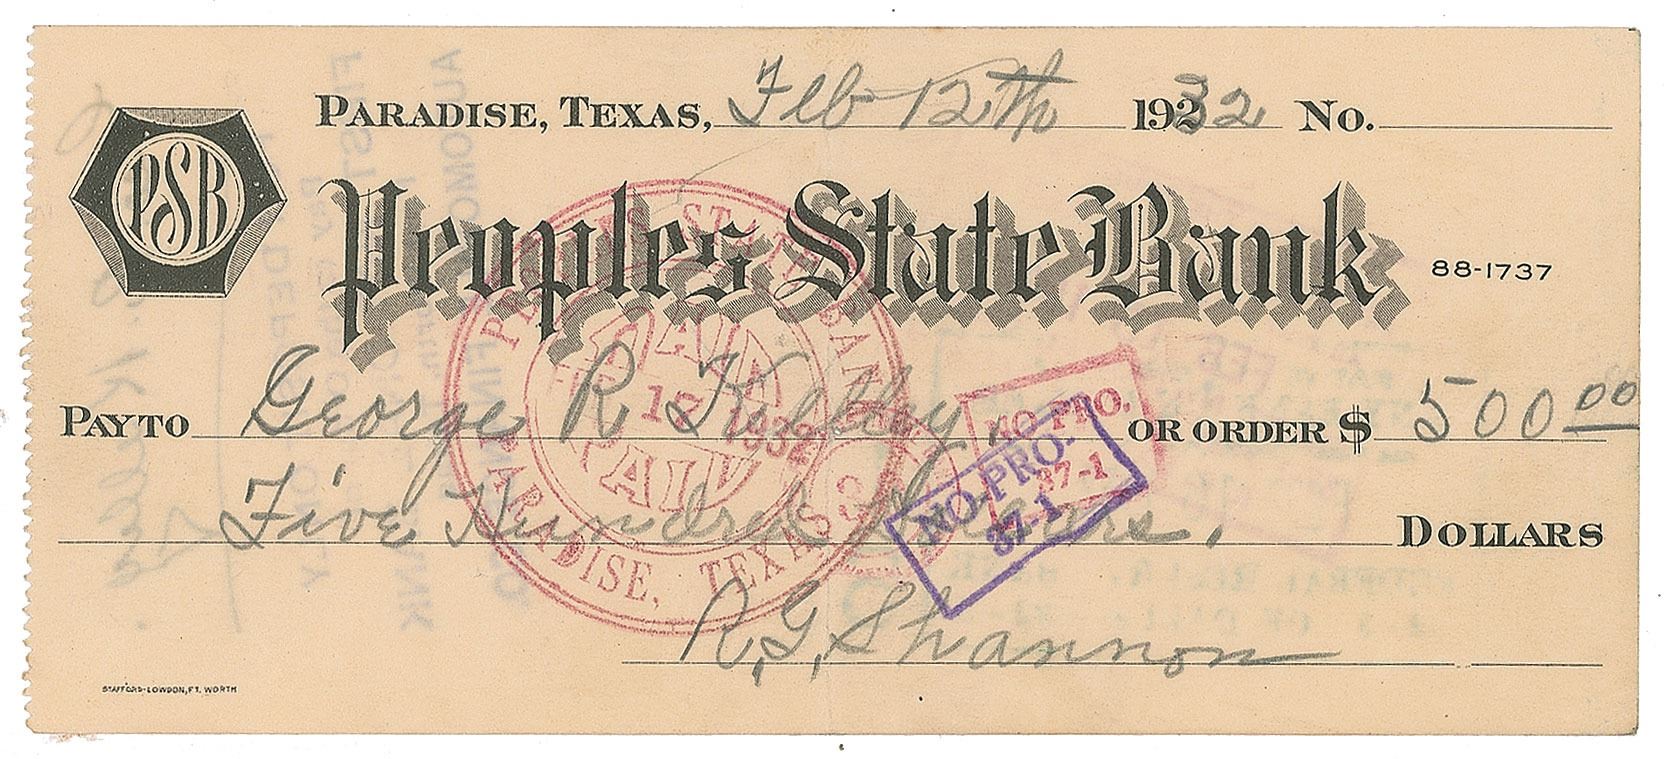 PARADISE, TEXAS, Feb 12th 1932 No.
PSB
Peoples State Bank
88-1737
PAY TO George R Kelley. OR ORDER $ 500 00
Five Hundred Dollars. DOLLARS
R. G. Shannon
STAFFORD-LOWDON, FT. WORTH
PEOPLES STATE BANK
PARADISE, TEXAS
1932
PAID
NO-PRO.
37-1
NO-PRO.
37-1